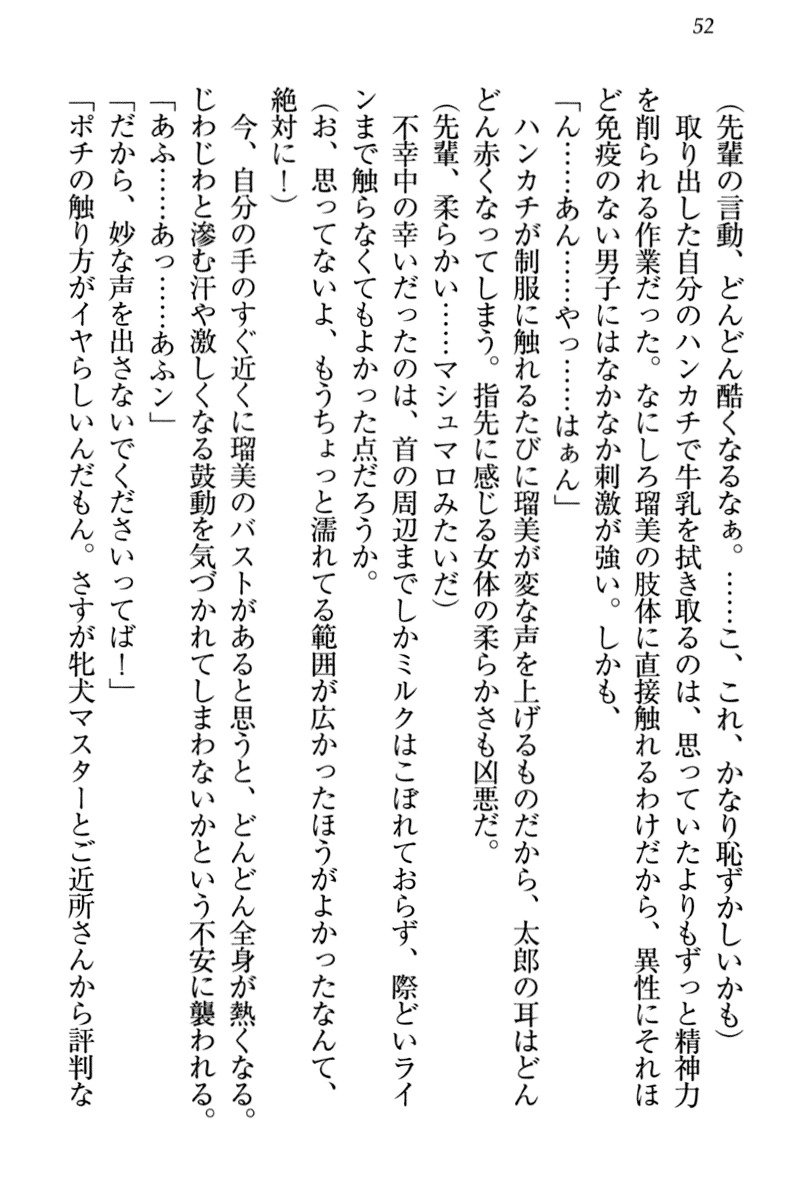 52
(先輩の言動、どんどん酷くなるなぁ。……こ、これ、かなり恥ずかしいかも)
　取り出した自分のハンカチで牛乳を拭き取るのは、思っていたよりもずっと精神力
を削られる作業だった。なにしろ瑠美の肢体に直接触れるわけだから、異性にそれほ
ど免疫のない男子にはなかなか刺激が強い。しかも、
「ん……あん……やっ……はぁん」
　ハンカチが制服に触れるたびに瑠美が変な声を上げるものだから、太郎の耳はどん
どん赤くなってしまう。指先に感じる女体の柔らかさも凶悪だ。
(先輩、柔らかい……マシュマロみたいだ)
　不幸中の幸いだったのは、首の周辺までしかミルクはこぼれておらず、際どいライ
ンまで触らなくてもよかった点だろうか。
(お、思ってないよ、もうちょっと濡れてる範囲が広かったほうがよかったなんて、
絶対に！)
　今、自分の手のすぐ近くに瑠美のバストがあると思うと、どんどん全身が熱くなる。
じわじわと滲む汗や激しくなる鼓動を気づかれてしまわないかという不安に襲われる。
「あふ……あっ……あふン」
「だから、妙な声を出さないでくださいってば！」
「ポチの触り方がイヤらしいんだもん。さすが牝犬マスターとご近所さんから評判な